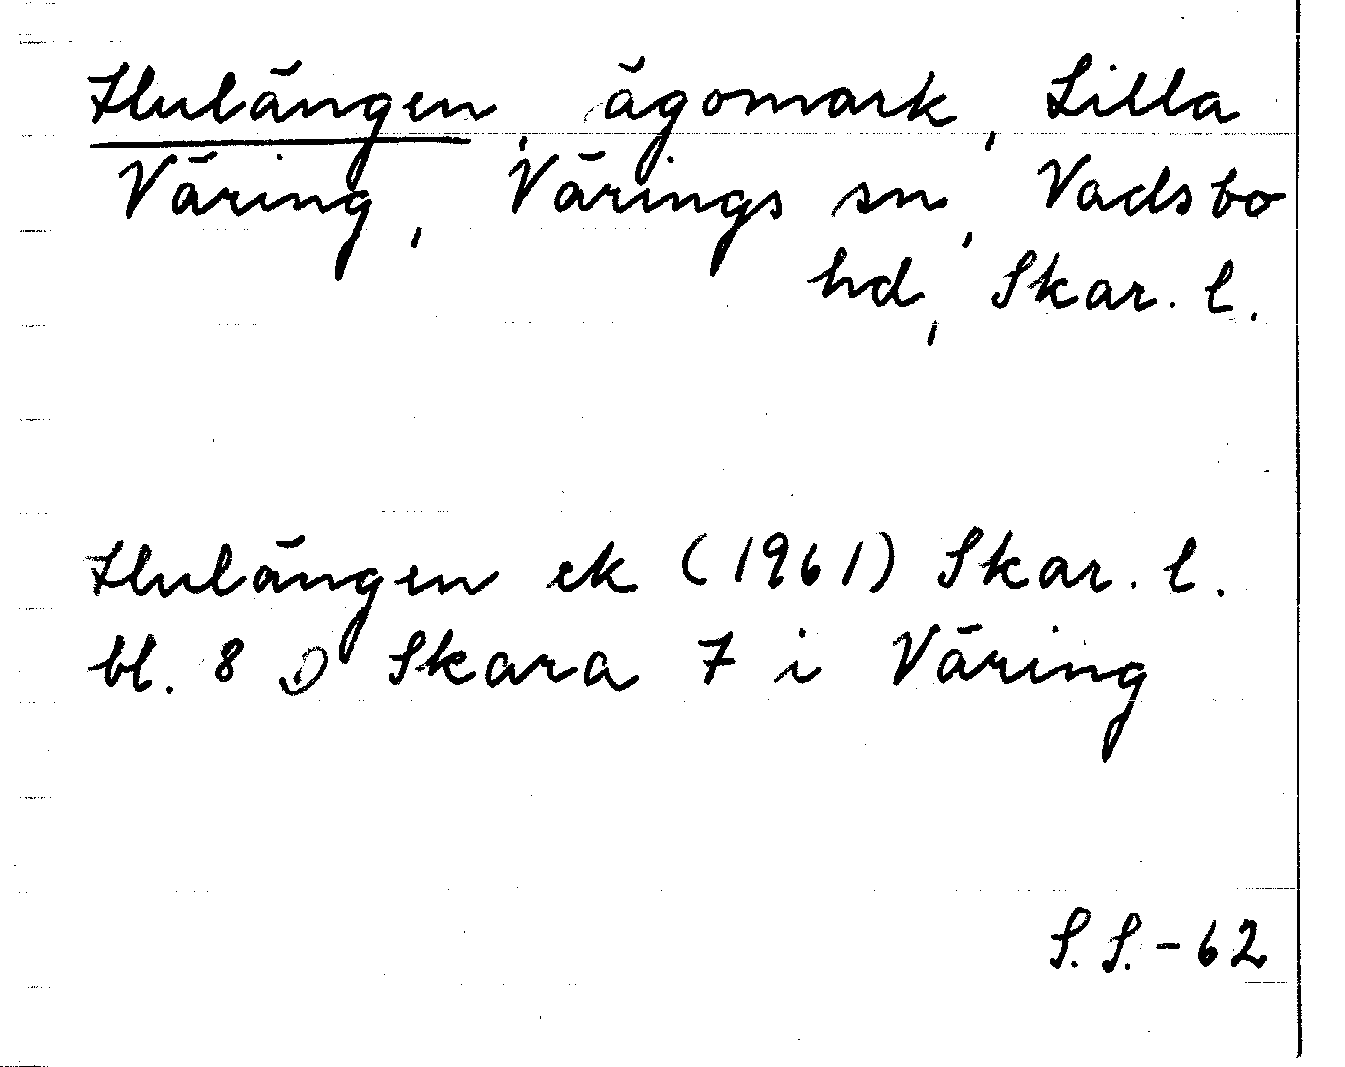 Hulängen, ägomark, Lilla
Väring, Värings sn, Vadsbo
hd, Skar. l.
Hulängen ek (1961) Skar. l.
bl. 8 D Skara 7 i Väring
S. S. - 62